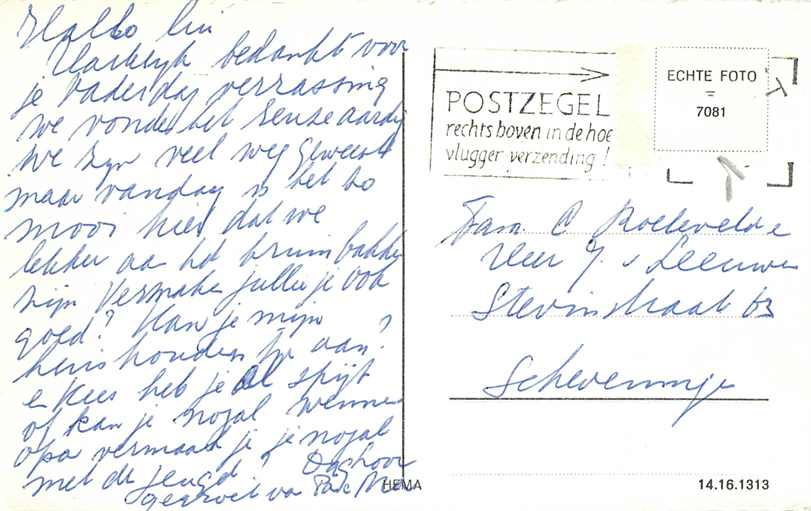 Hallo Lin
Hartelijk bedankt voor
je vaderdag verrassing
we vonden het reuze aardig
we zijn veel weg geweest
maar vandag is het zo
mooi hier dat we
lekker aan het bruin bakken
zijn Vermaken jullie je ook
goed? Kan je mijn
huishouden aan?
Kees heb je al spijt
of kan je nogal wennen
opa vermaak je je nogal
met de jeugd? Dag hoor
gegroet van Pa & Ma
POSTZEGEL
rechts boven in de hoe
vlugger verzending!
ECHTE FOTO
=
7081
Fam. C Roeleveld e
Heer J. v Leeuwen
Stevinstraat 63
Scheveningen
HEMA
14.16.1313